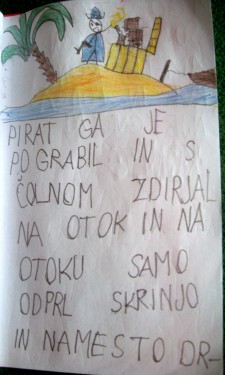 PIRAT GA JE
POGRABIL IN S
ČOLNOM ZDIRJAL
NA OTOK IN NA
OTOKU SAMO
ODPRL SKRINJO
IN NAMESTO DR-